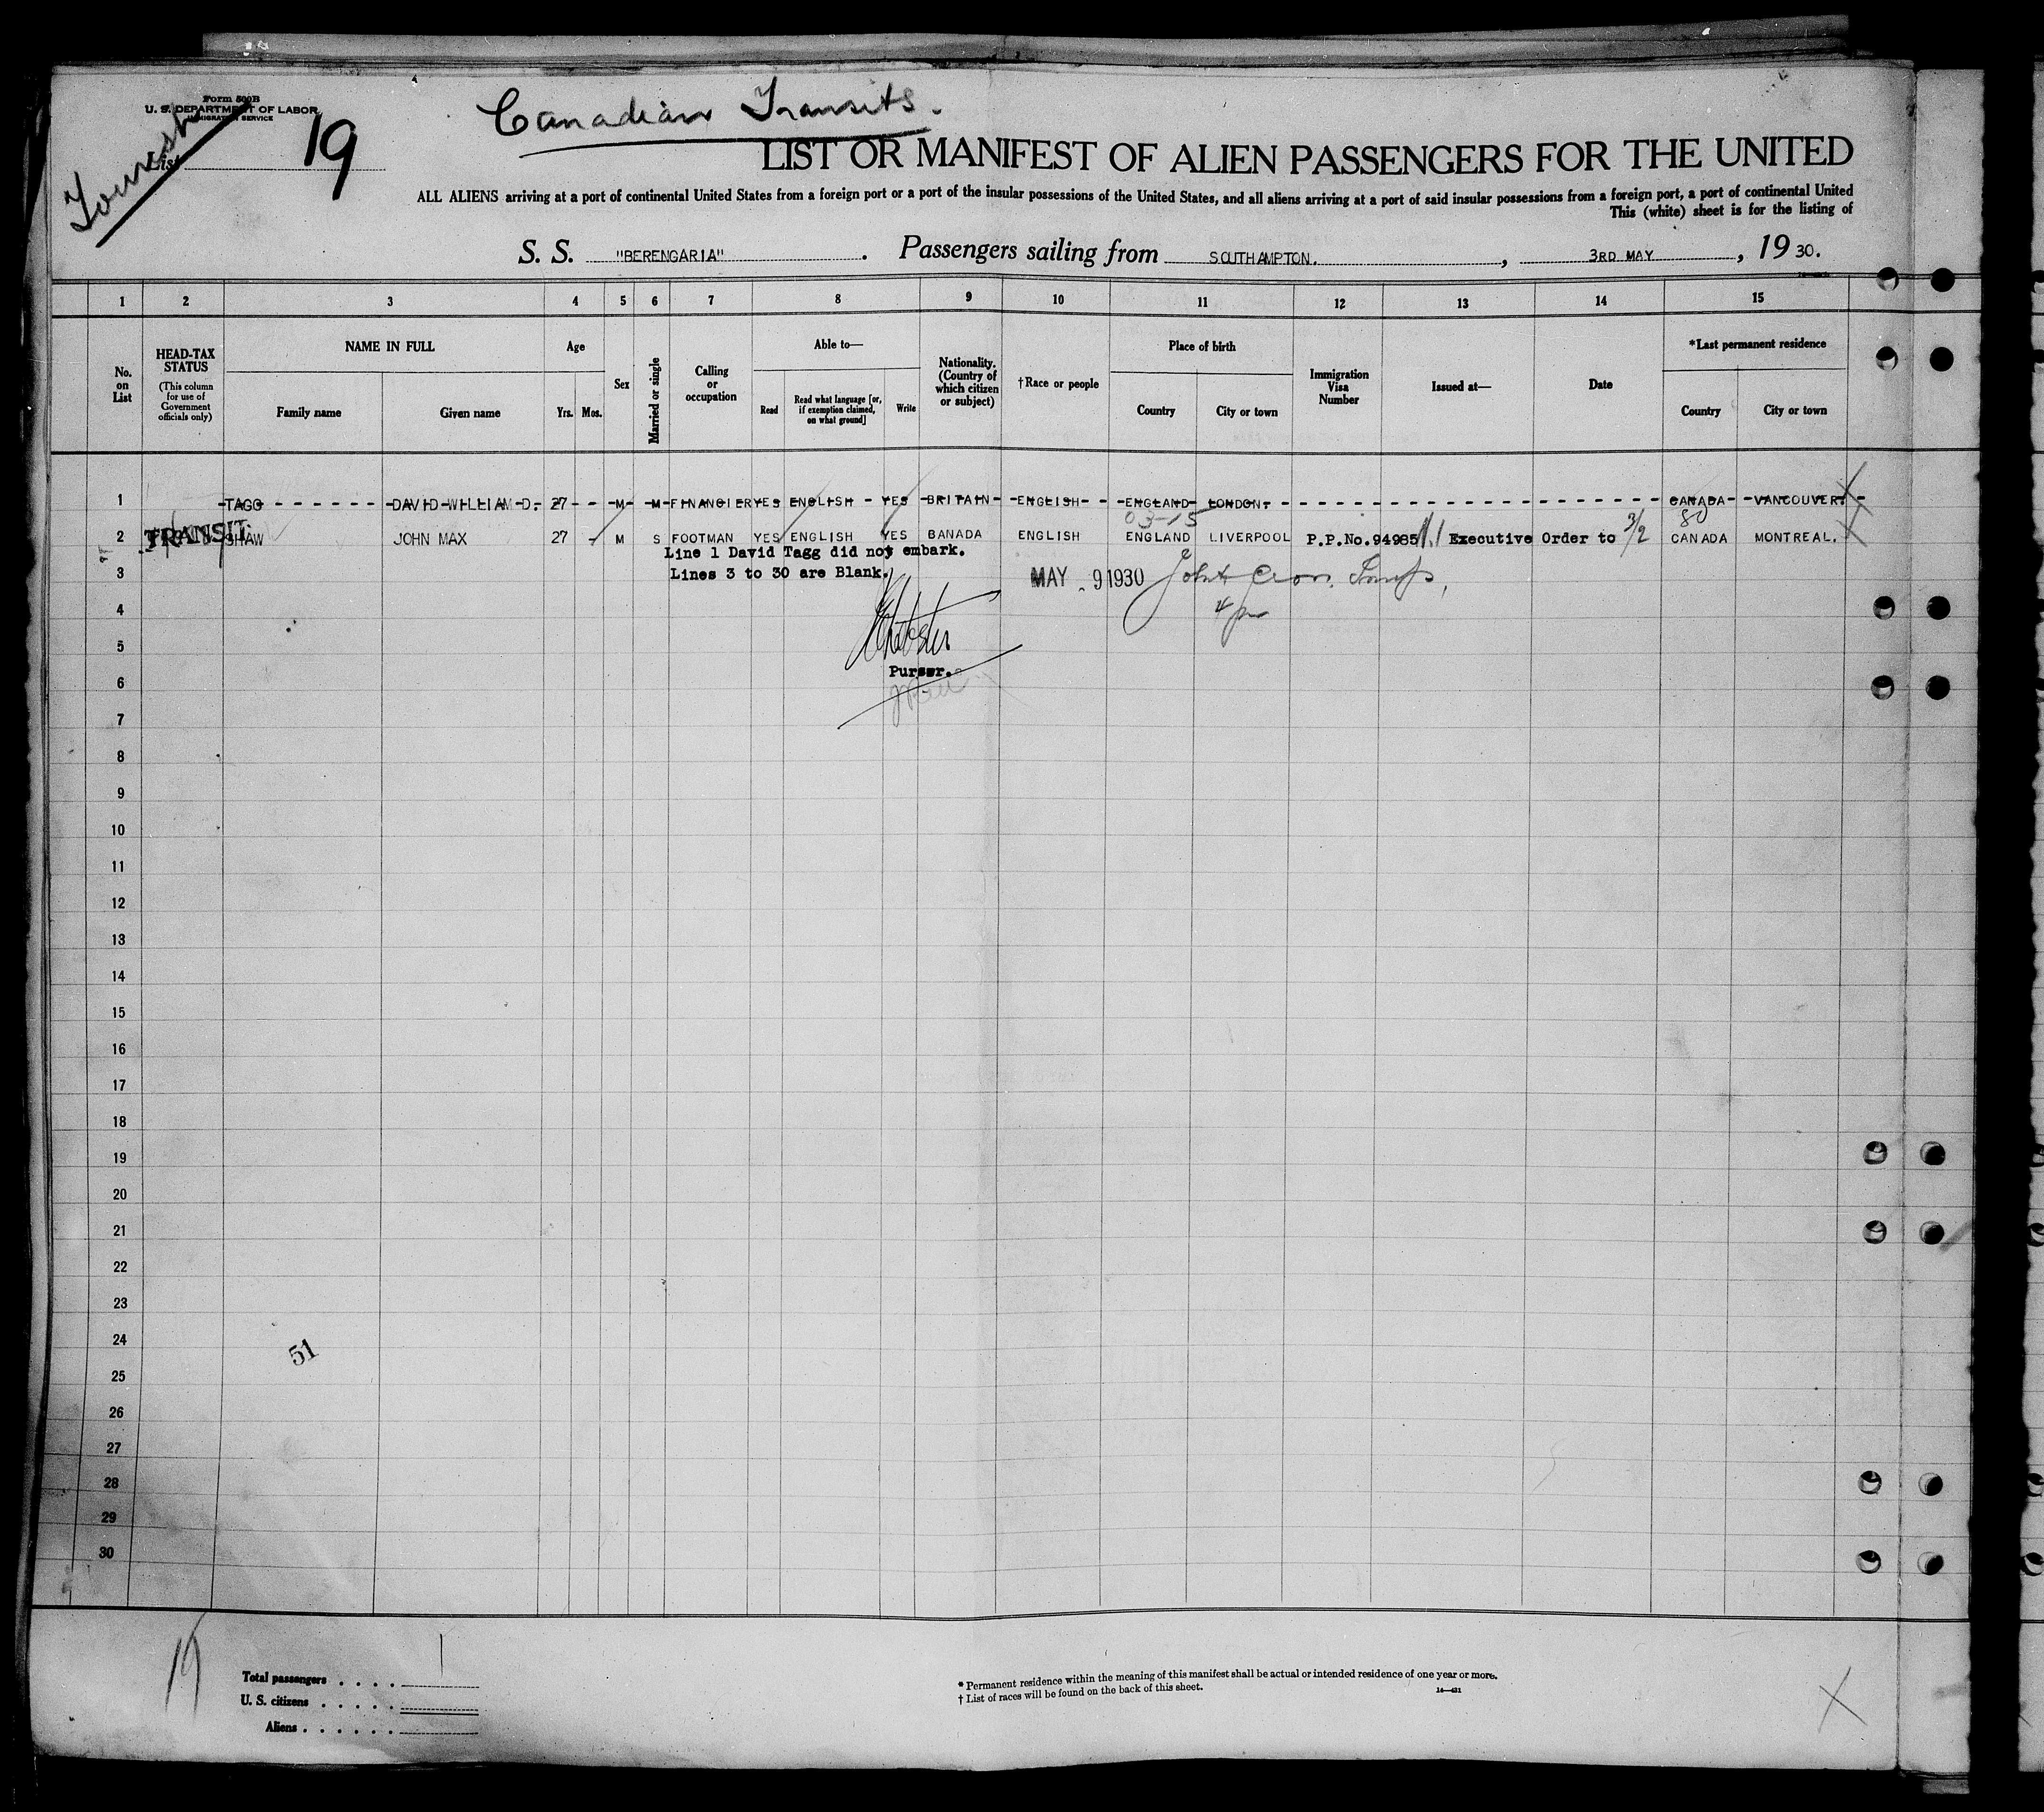 Form 500B
U. S. DEPARTMENT OF LABOR
IMMIGRATION SERVICE
Canadian Transits.
Tourists
List 19
LIST OR MANIFEST OF ALIEN PASSENGERS FOR THE UNITED
ALL ALIENS arriving at a port of continental United States from a foreign port or a port of the insular possessions of the United States, and all aliens arriving at a port of said insular possessions from a foreign port, a port of continental United
This (white) sheet is for the listing of
S. S. "BERENGARIA". Passengers sailing from SOUTHAMPTON., 3RD MAY, 1930.
1 2 3 4 5 6 7 8 9 10 11 12 13 14 15
No. on List
HEAD-TAX STATUS (This column for use of Government officials only)
NAME IN FULL
Family name Given name
Age
Yrs. Mos.
Sex
Married or single
Calling or occupation
Able to—
Read
Read what language [or, if exemption claimed, on what ground]
Write
Nationality. (Country of which citizen or subject)
†Race or people
Place of birth
Country City or town
Immigration Visa Number
Issued at—
Date
*Last permanent residence
Country City or town
1 TAGG DAVID WILLIAM D. 27 M M FINANCIER YES ENGLISH YES BRITAIN ENGLISH ENGLAND LONDON. CANADA VANCOUVER.
03-15 80
2 TRANSIT SHAW JOHN MAX 27 - M S FOOTMAN YES ENGLISH YES BANADA ENGLISH ENGLAND LIVERPOOL P.P.No.94985 Executive Order to 3/2 CANADA MONTREAL.
Line 1 David Tagg did not embark.
3 Lines 3 to 30 are Blank. MAY 9 1930
4
5
Purser.
6
7
8
9
10
11
12
13
14
15
16
17
18
19
20
21
22
23
24
51
25
26
27
28
29
30
19
Total passengers . . . . 1
U. S. citizens . . . . .
Aliens . . . . . .
* Permanent residence within the meaning of this manifest shall be actual or intended residence of one year or more.
† List of races will be found on the back of this sheet.
14—431